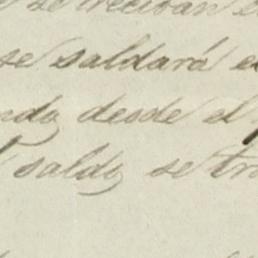 se reciban
se saldará
desde el
saldo se